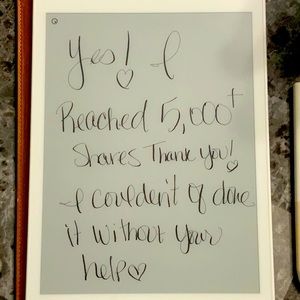 Yes! ♡ I
Reached 5,000+
Shares Thank You! ♡
I coulden't of done
it without your
help ♡